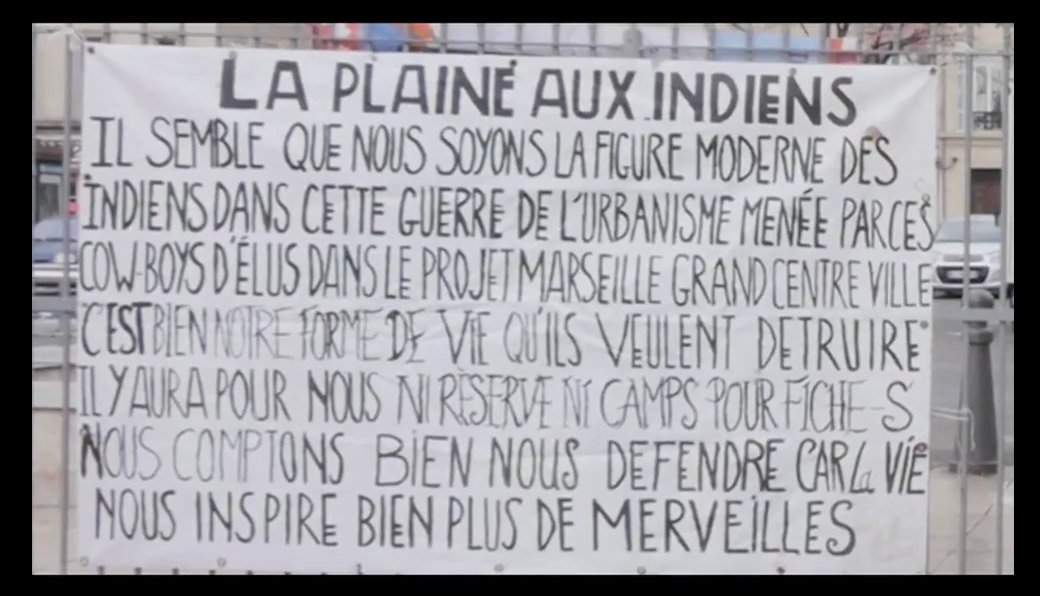 LA PLAINE AUX INDIENS
IL SEMBLE QUE NOUS SOYONS LA FIGURE MODERNE DES
INDIENS DANS CETTE GUERRE DE L'URBANISME MENÉE PAR CES
COW-BOYS D'ÉLUS DANS LE PROJET MARSEILLE GRAND CENTRE VILLE
C'EST BIEN NOTRE FORME DE VIE QU'ILS VEULENT DETRUIRE
IL Y AURA POUR NOUS NI RÉSERVE NI CAMPS POUR FICHE-S
NOUS COMPTONS BIEN NOUS DEFENDRE CAR La VIE
NOUS INSPIRE BIEN PLUS DE MERVEILLES